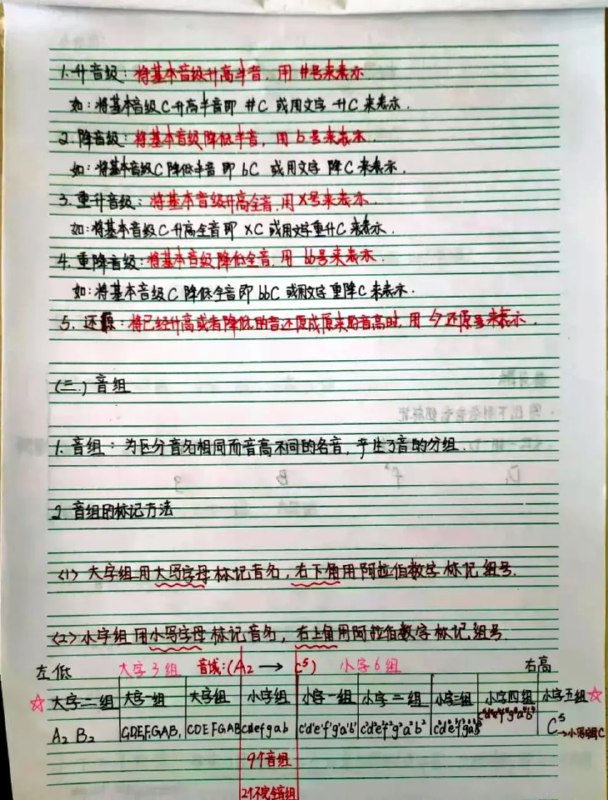 1. 升音级：将基本音级升高半音，用 #号来表示.
如：将基本音级C升高半音即 #C 或用文字 升C 来表示.
2. 降音级：将基本音级降低半音，用 b号来表示.
如：将基本音级C降低半音即 bC 或用文字 降C 来表示.
3. 重升音级：将基本音级升高全音，用X号来表示.
如：将基本音级C升高全音即 XC 或用文字重升C 来表示.
4. 重降音级：将基本音级降低全音，用 bb号来表示.
如：将基本音级C 降低全音即 bbC 或用文字 重降C 来表示.
5. 还原：将已经升高或者降低的音还原成原来的音高时，用 ♮还原号来表示.
(三.) 音组
1. 音组：为区分音名相同而音高不同的各音，产生了音的分组.
2. 音组的标记方法
<1> 大字组用大写字母标记音名，右下角用阿拉伯数字标记组号.
<2> 小字组用小写字母标记音名，右上角用阿拉伯数字标记组号.
左低 大字3组 音域：(A₂ → c⁵) 小字6组 右高
☆ 大字二组 大字一组 大字组 小字组 小字一组 小字二组 小字三组 小字四组 小字五组 ☆
A₂ B₂ C₁D₁E₁F₁G₁A₁B₁ CDEFGAB cdefgab c¹d¹e¹f¹g¹a¹b¹ c²d²e²f²g²a²b² c³d³e³f³g³a³b³ c⁴d⁴e⁴f⁴g⁴a⁴b⁴ C⁵
9个音组
2个不完全音组